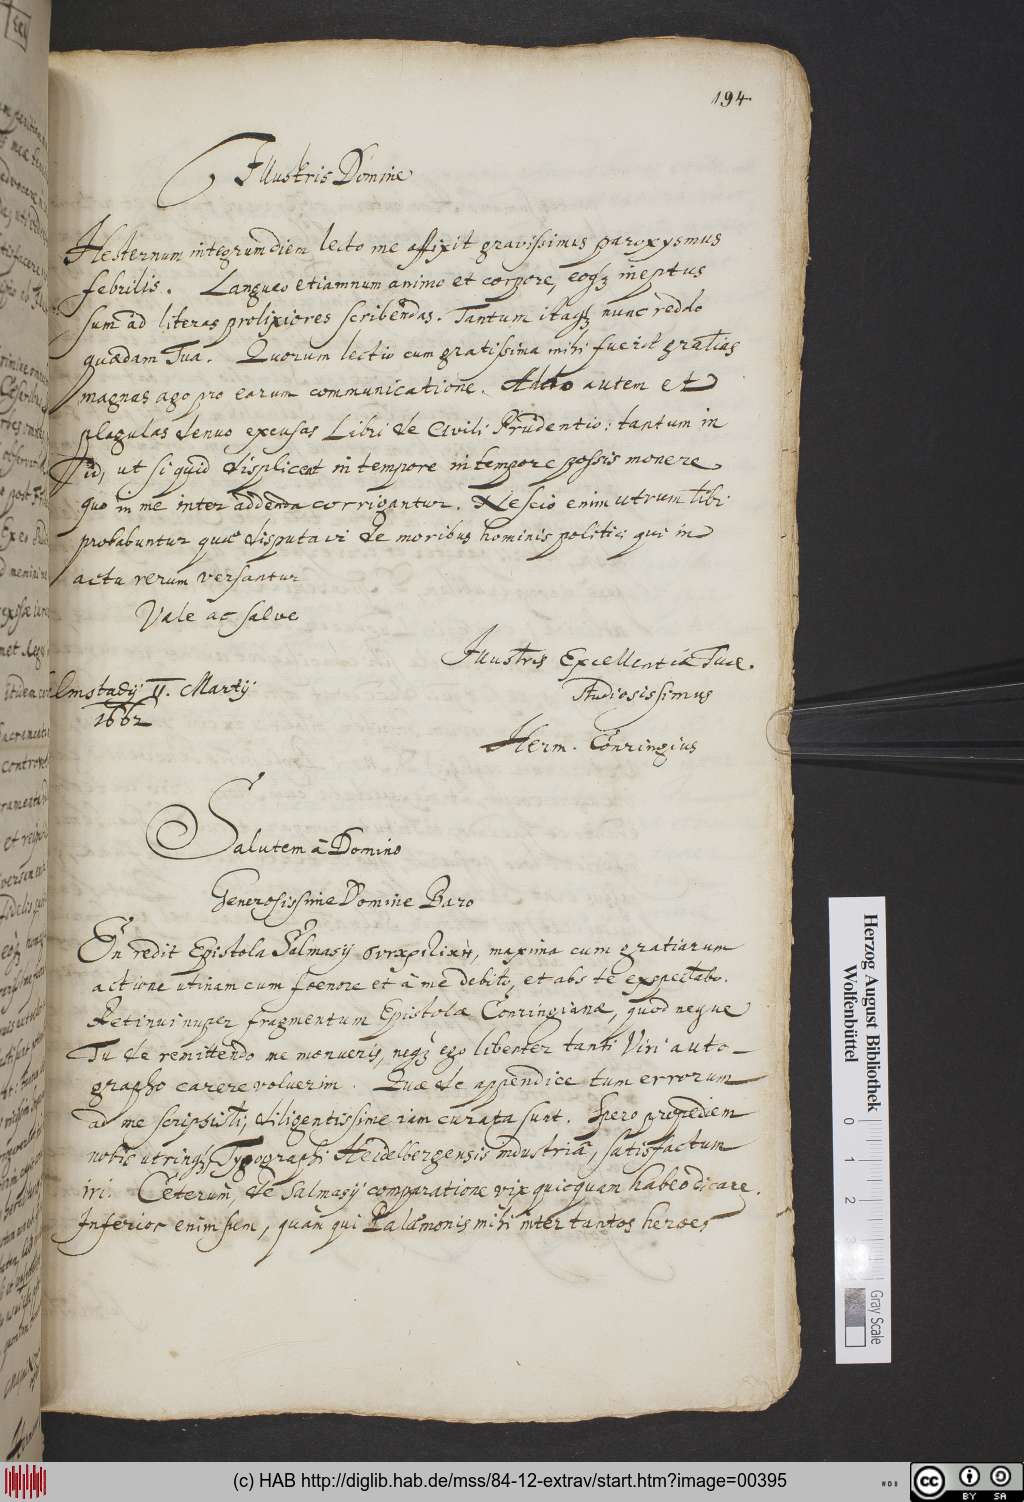 194
Illustris Domine
Hesternum integrum diem lecto me affixit gravissimus paroxysmus
febrilis. Langueo etiamnum animo et corpore, eoqꝫ ineptus
sum ad literas prolixiores scribendas. Tantum itaqꝫ nunc reddo
quædam Tua. Quorum lectio cum gratissima mihi fuerit gratias
magnas ago pro earum communicatione. Addo autem et
plagulas denuo excusas Libri de Civili Prudentia: tantum in
id, ut si quid displiceat in tempore in tempore possis monere
quo in me inter addenda corrigantur. Nescio enim utrum tibi
probabuntur quæ disputavi de moribus hominis politici qui in
actu rerum versantur
Vale ac salve
Illustris Excellentiæ Tuæ.
Studiosissimus
Herm. Conringius
Martij
1662
Salutem à Domino
Generosissime Domine Baro
En redit Epistola Salmasij maxima cum gratiarum
actione utinam cum foenore et à me debito, et abs te exspectato.
Retinui nuper fragmentum Epistolæ Conringianæ, quod neque
Tu de remittendo me monueris, neqꝫ ego libenter tanti Viri auto-
grapho carere voluerim. Quæ de appendice tum errorum
ad me scripsisti, diligentissime iam curata sunt. Spero propediem
nobis utrinqꝫ Typographi Heidelbergensis industriâ, satisfactum
iri. Ceterum, de Salmasij comparatione vix quicquam habeo dicare.
Inferior enim sum, quàm qui Palæmonis mihi inter tantos heroes
Herzog August Bibliothek
Wolfenbüttel
0 1 2 3
Gray Scale
(c) HAB http://diglib.hab.de/mss/84-12-extrav/start.htm?image=00395
cc BY SA